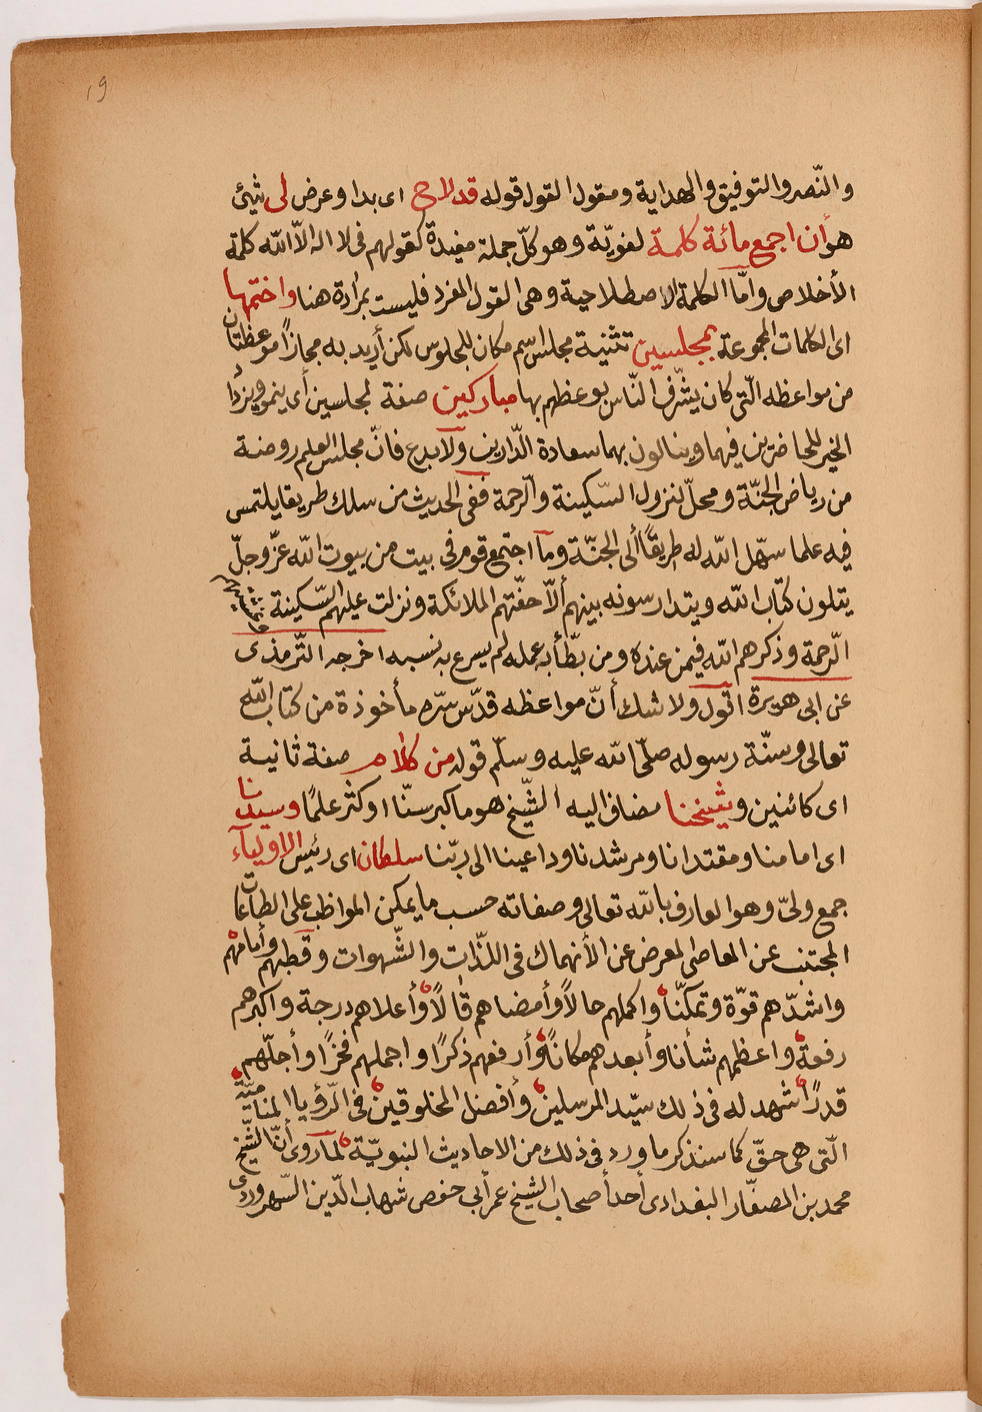 19
والنّصر والتوفيق والهداية ومقول القول قوله قد لاح اى بدا وعرض لى شيئ
هو أن اجمع مائة كلمة لغويّة وهو كلّ جملة مفيدة كقولهم فى لا اله الاّ الله كلمة
الأخلاص وامّا الكلمة الاصطلاحية وهى القول المفرد فليست بمرادة هنا واختمها
اى الكلمات المجموعة بمجلسين تثنية مجلس اسم مكان للجلوس لكن أريد به مجازاً موعظتان
من مواعظه الّتى كان يشرّف النّاس بوعظهم بها مباركين صفة لمجلسين أى ينمو ويزدا
الخير للحاضرين فيهما وينالون بهما سعادة الدّارين ولا بدع فانّ مجلس العلم روضة
من رياض الجنّة ومحلّ لنزول السّكينة والرحمة ففى الحديث من سلك طريقا يلتمس
فيه علما سهّل الله له طريقاً ألى الجنّة وما اجتمع قوم فى بيت من بيوت الله عزّ وجلّ
يتلون كتاب الله ويتدارسونه بينهم ألاّ حفّتهم الملائكة ونزلت عليهم السّكينة وغشيتهم
الرّحمة وذكرهم الله فيمن عنده ومن بطّأ به عمله لم يسرع به نسبه اخرجه التّرمذى
عن ابى هريرة اقول ولا شك أنّ مواعظه قدّس سرّه مأخوذة من كتاب الله
تعالى وسنّة رسوله صلّى الله عليه وسلّم قوله من كلام صفة ثانية
اى كائنين وشيخنا مضاف اليه الشّيخ هو ما كبر سنّا او كثر علمًا وسيدنا
اى امامنا ومقتدانا ومرشدنا وداعينا الى ربّنا سلطان اى رئيس الاولياء
جمع ولىّ وهو العارف بالله تعالى وصفاته حسب ما يمكن المواظب على الطاعات
المجتنب عن المعاصى المعرض عن الأنهماك فى اللذّات والشّهوات وقطبهم وأمامهم
واشدّهم قوّة وتمكنّا واكملهم حالاً وأمضاهم قالاً وأعلاهم درجة واكبرهم
رفعة واعظمهم شأنا وأبعدهم مكانًا وأرفعهم ذكرًا واجملهم فخرًا وأجلّهم
قدرًا شهد له فى ذلك سيّد المرسلين وأفضل المخلوقين فى الرّؤيا المناميّة
الّتى هى حقّ كما سنذكر ما ورد فى ذلك من الاحاديث النبويّة لما روى أنّ الشّيخ
محمد بن المصفّار البغدادى أحد أصحاب الشيخ عمر أبى حفص شهاب الدّين السّهروردى